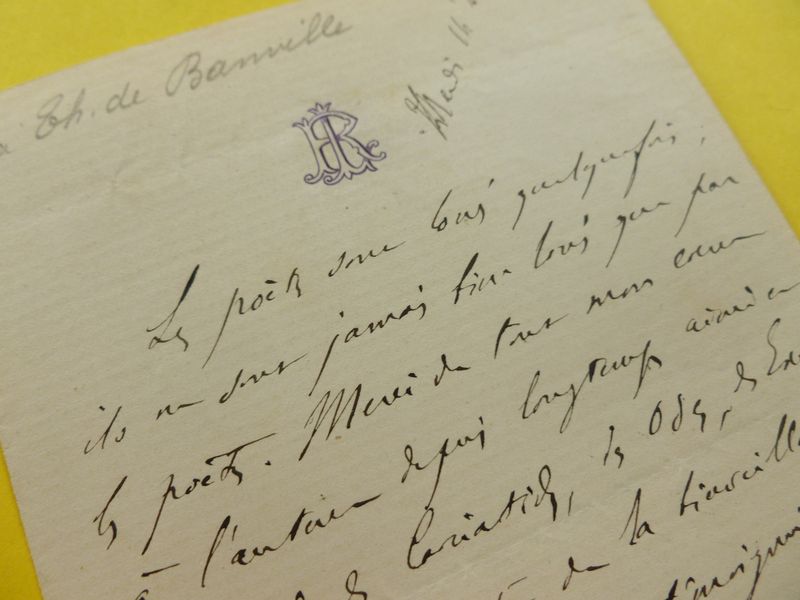 à Th. de Banville
Mardi 14
Les poètes sont loués quelquefois ;
ils ne sont jamais bien loués que par
les poètes. Merci de tout mon coeur
à l'auteur depuis longtemps aimé
des Cariatides, des Odes, des
de la